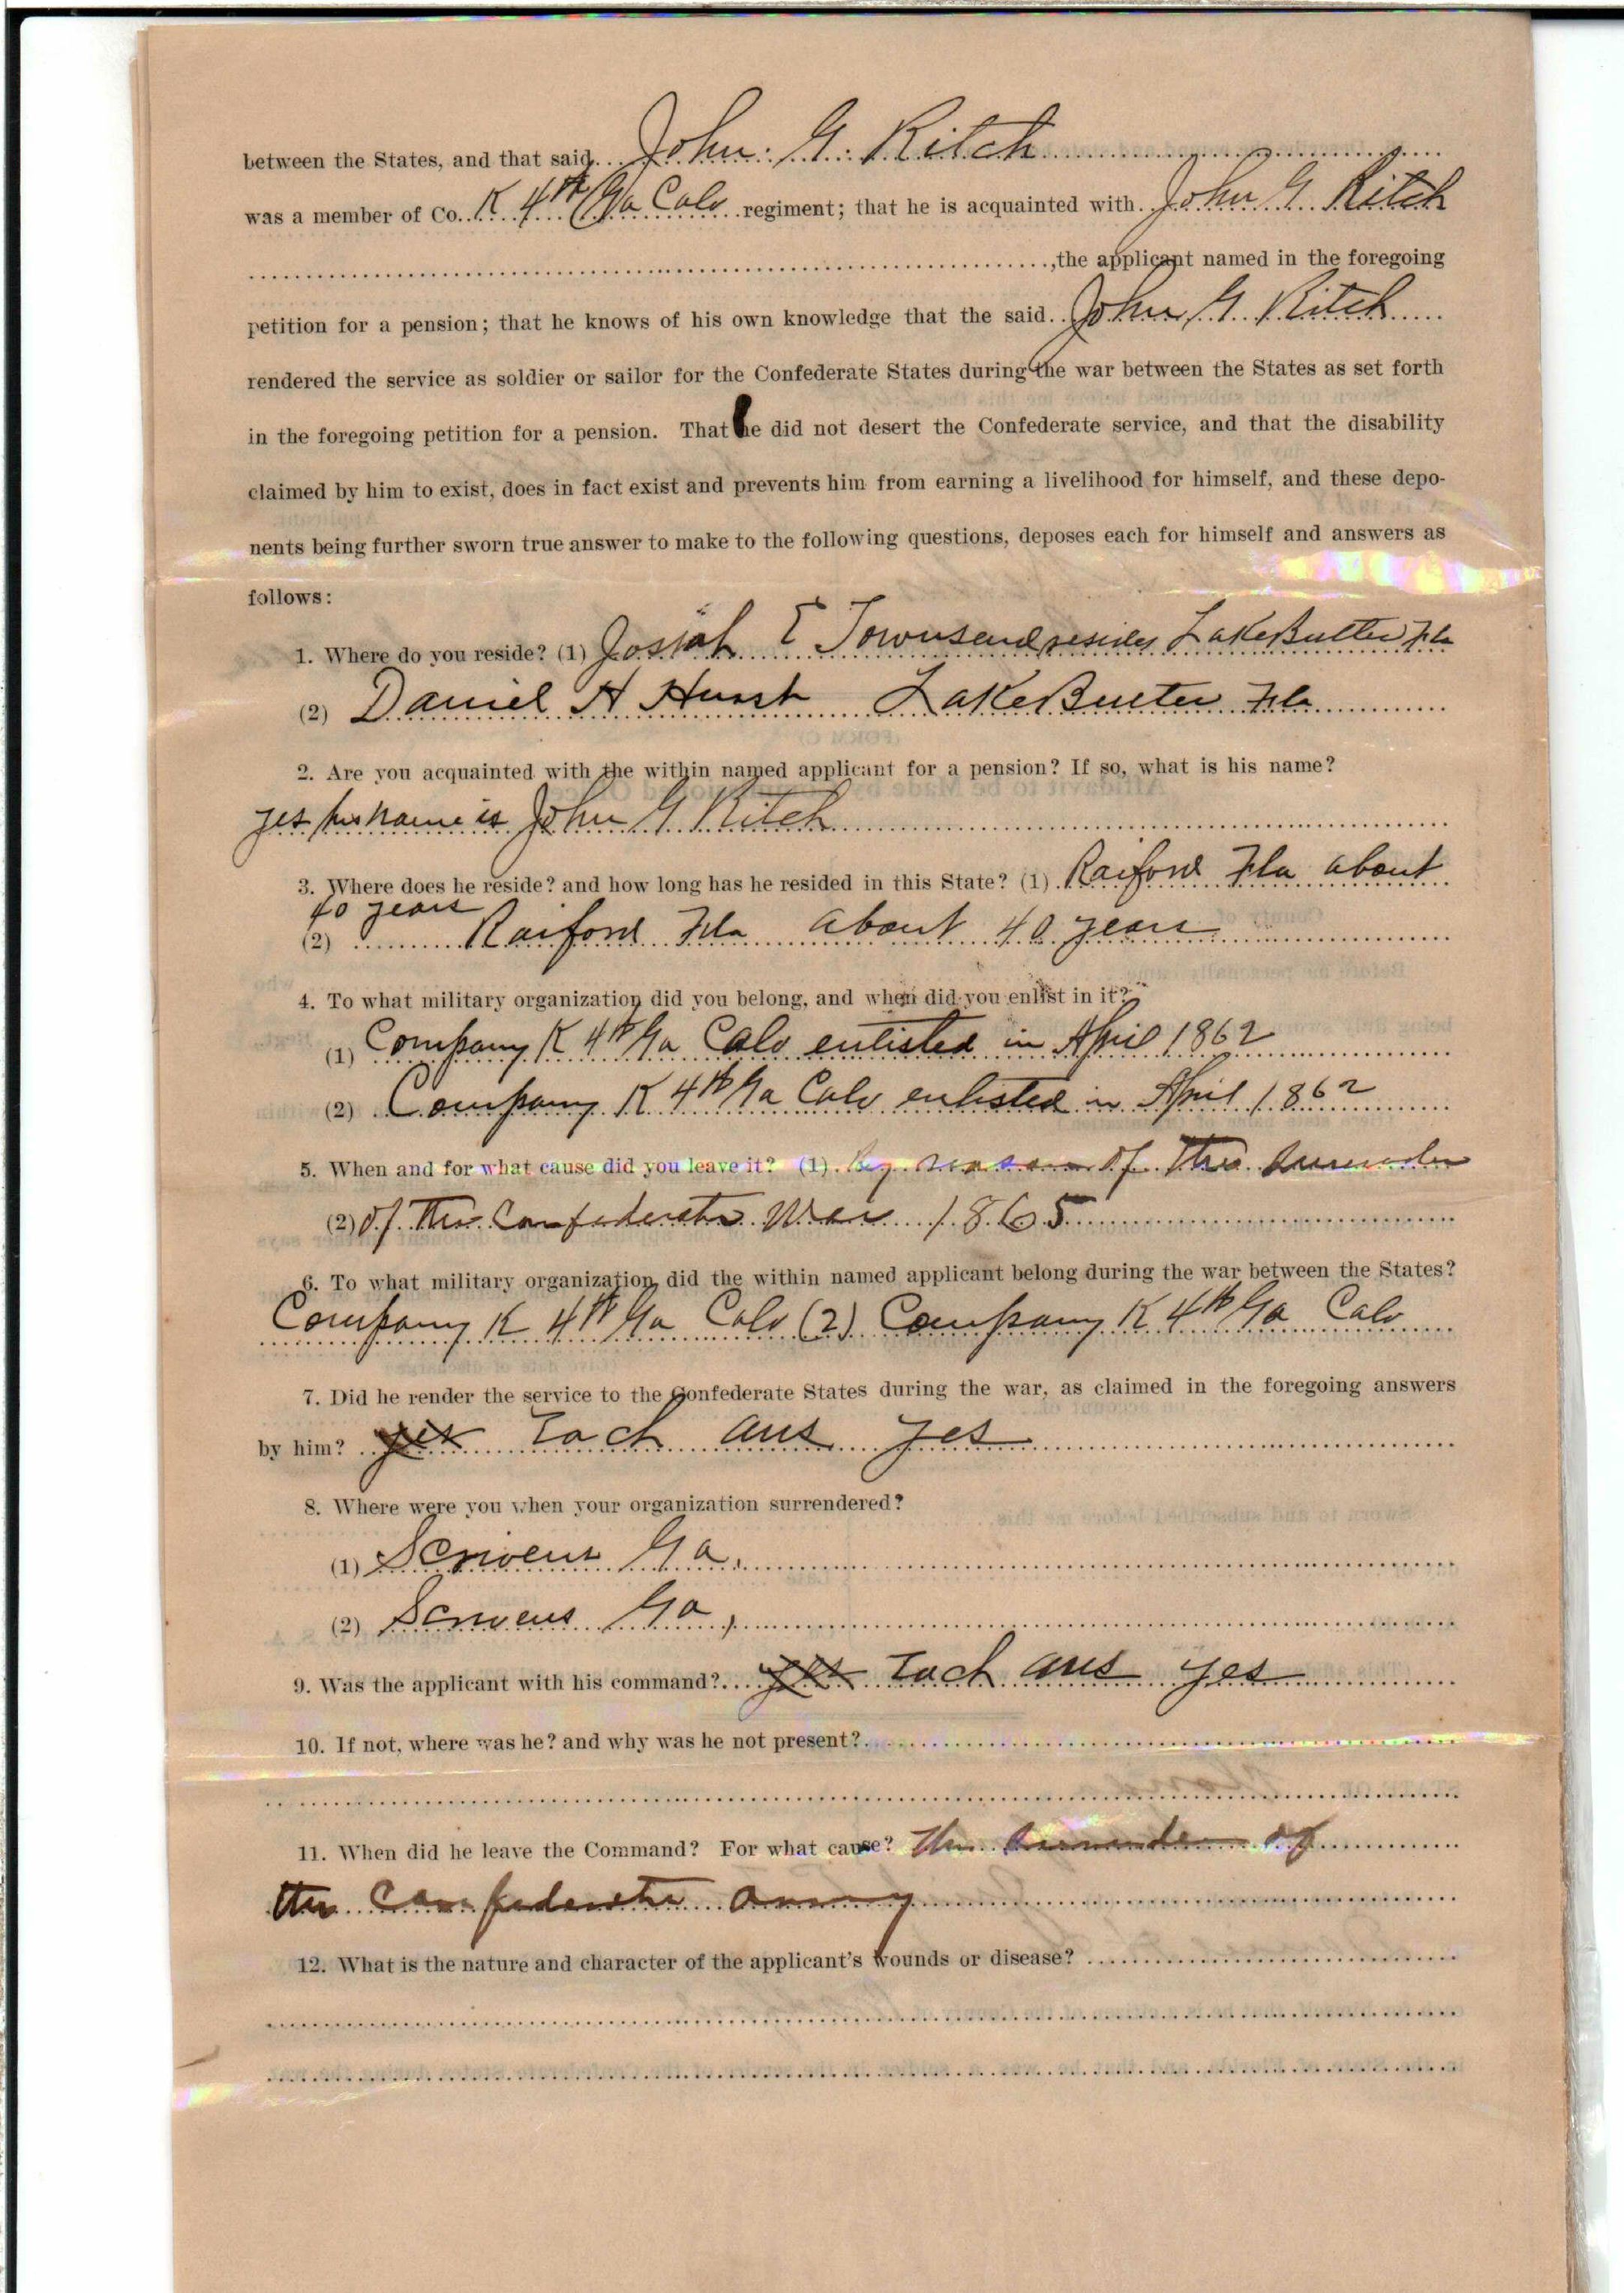 between the States, and that said John. G. Ritch
was a member of Co. K 4th Ga Calv regiment; that he is acquainted with John G. Ritch
, the applicant named in the foregoing
petition for a pension; that he knows of his own knowledge that the said John G. Ritch
rendered the service as soldier or sailor for the Confederate States during the war between the States as set forth
in the foregoing petition for a pension. That he did not desert the Confederate service, and that the disability
claimed by him to exist, does in fact exist and prevents him from earning a livelihood for himself, and these depo-
nents being further sworn true answer to make to the following questions, deposes each for himself and answers as
follows:
1. Where do you reside? (1) Josiah E Townsend resides Lake Butler Fla
(2) Daniel H Hurst Lake Butler Fla
2. Are you acquainted with the within named applicant for a pension? If so, what is his name?
yes his name is John G Ritch
3. Where does he reside? and how long has he resided in this State? (1) Raiford Fla about
40 years
(2) Raiford Fla about 40 years
4. To what military organization did you belong, and when did you enlist in it?
(1) Company K 4th Ga Calv enlisted in April 1862
(2) Company K 4th Ga Calv enlisted in April 1862
5. When and for what cause did you leave it? (1) by reason of the surrender
(2) of the Confederate War 1865
6. To what military organization did the within named applicant belong during the war between the States?
Company K 4th Ga Calv (2) Company K 4th Ga Calv
7. Did he render the service to the Confederate States during the war, as claimed in the foregoing answers
by him? yes Each ans yes
8. Where were you when your organization surrendered?
(1) Scrivens Ga.
(2) Scrivens Ga,
9. Was the applicant with his command? yes Each ans yes
10. If not, where was he? and why was he not present?
11. When did he leave the Command? For what cause? the surrender of
the Confederate army
12. What is the nature and character of the applicant's wounds or disease?